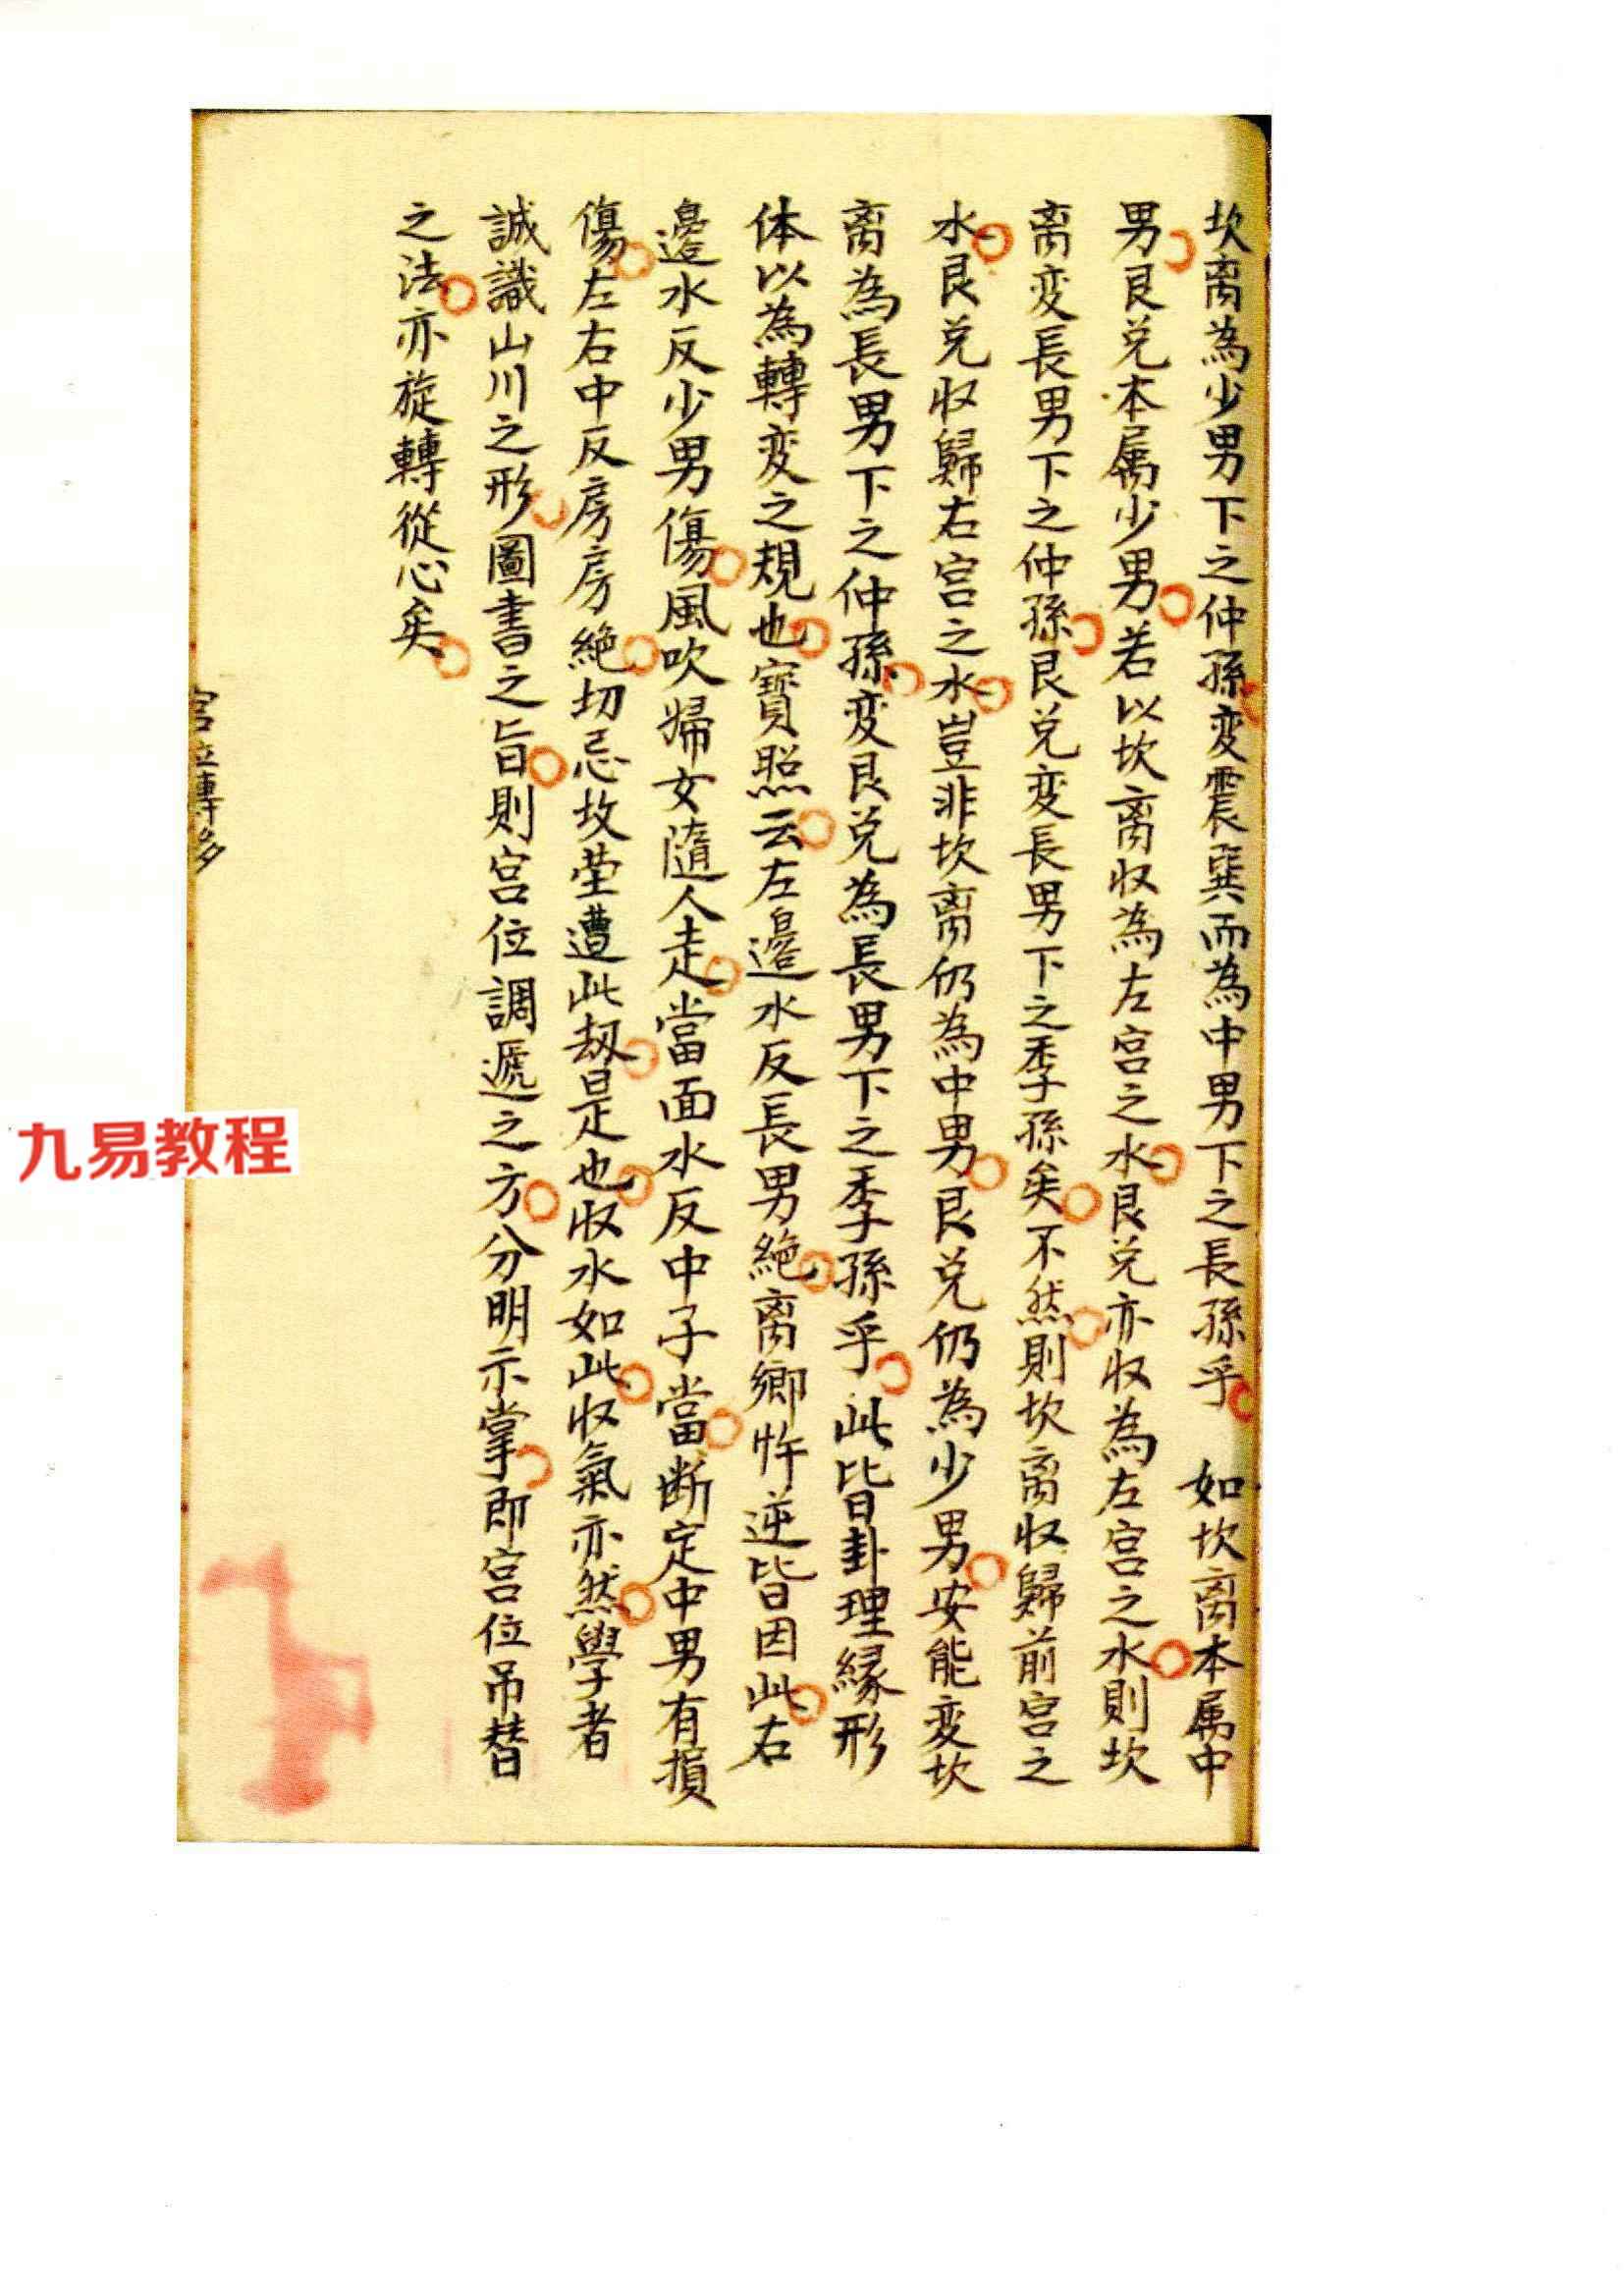 坎离為少男下之仲孫変震巽而為中男下之長孫乎　如坎离本属中
男艮兑本属少男若以坎离収為左宫之水艮兑亦収為左宫之水則坎
离変長男下之仲孫艮兑変長男下之季孫矣不然則坎离収歸前宫之
水艮兑収歸右宫之水豈非坎离仍為中男艮兑仍為少男安能変坎
离為長男下之仲孫変艮兑為長男下之季孫乎此皆卦理緣形
体以為轉変之規也寳照云左邉水反長男絶离鄉忤逆皆因此右
邉水反少男傷風吹婦女隨人走當面水反中子當断定中男有損
傷左右中反房房絶切忌坟茔遭此刼是也収水如此収氣亦然學者
誠識山川之形圖書之旨則宫位調遞之方分明示掌即宫位吊替
之法亦旋轉從心矣
九易教程